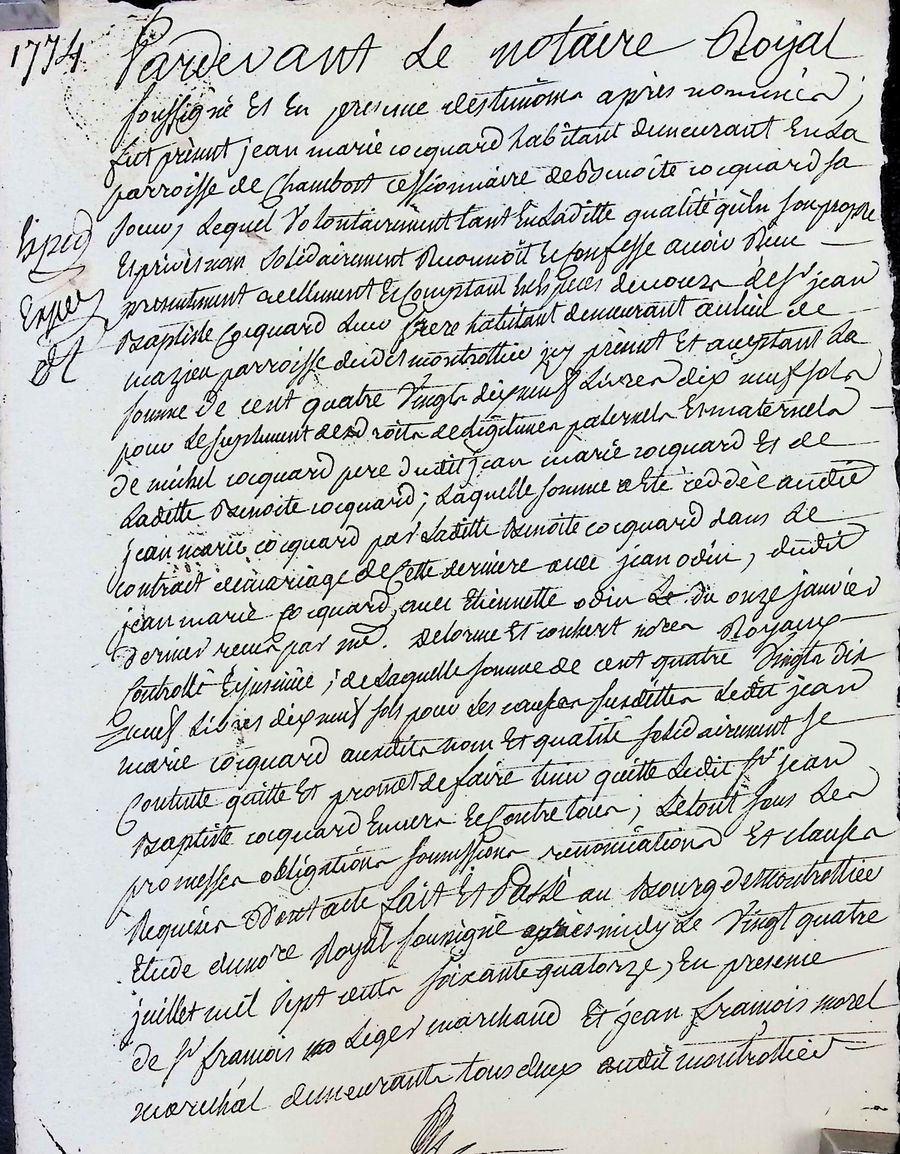 1774
Pardevant Le notaire Royal
soussigné Et En presence des temoins après nommés ;
fut présent jean marie cocquard habitant demeurant En La
parroisse de Chambost cessionnaire de Benoite cocquard sa
soeur, Lequel Volontairement tant En Laditte qualité qu'En son propre
Et privé nom solidairement Reconnoit Et confesse avoir Reçu
Exped
presentement reellement Et comptant En Espèces de cours de Sr jean
Baptiste Cocquard Leur frere habitant demeurant au lieu de
mazieu parroisse dudit montrottier icy présent Et acceptant La
somme de cent quatre Vingts dix neuf Livres dix neuf sols
pour Le suplement des droits de Légitimes paternels Et maternels
de michel cocquard pere dudit jean marie cocquard Et de
Laditte Benoite cocquard ; Laquelle somme a Eté cédée audit
jean marie cocquard par Laditte Benoite cocquard dans Le
contrat de mariage de Cette derniere avec jean odin, dudit
jean marie cocquard avec Etiennette odin du onze janvier
dernier reçu par me. Delorme Et nores Royaux
Controllé Et insinué ; de Laquelle somme de cent quatre Vingts dix
neuf Livres dix neuf sols pour Les causes susdittes Ledit jean
marie cocquard auxdits nom Et qualité solidairement se
Contente quitte Et promet de faire tenir quitte Ledit Sr jean
Baptiste cocquard Envers Et Contre tous ; Le tout sous Les
promesses obligations soumissions renonciations Et clauses
Requises Dont acte fait Et Passé au Bourg de montrottier
Etude du nore Royal soussigné après midy Le Vingt quatre
juillet mil sept cents soixante quatorze, En presence
de Sr francois Leger marchand Et jean francois morel
marechal demeurants tous deux audit montrottier